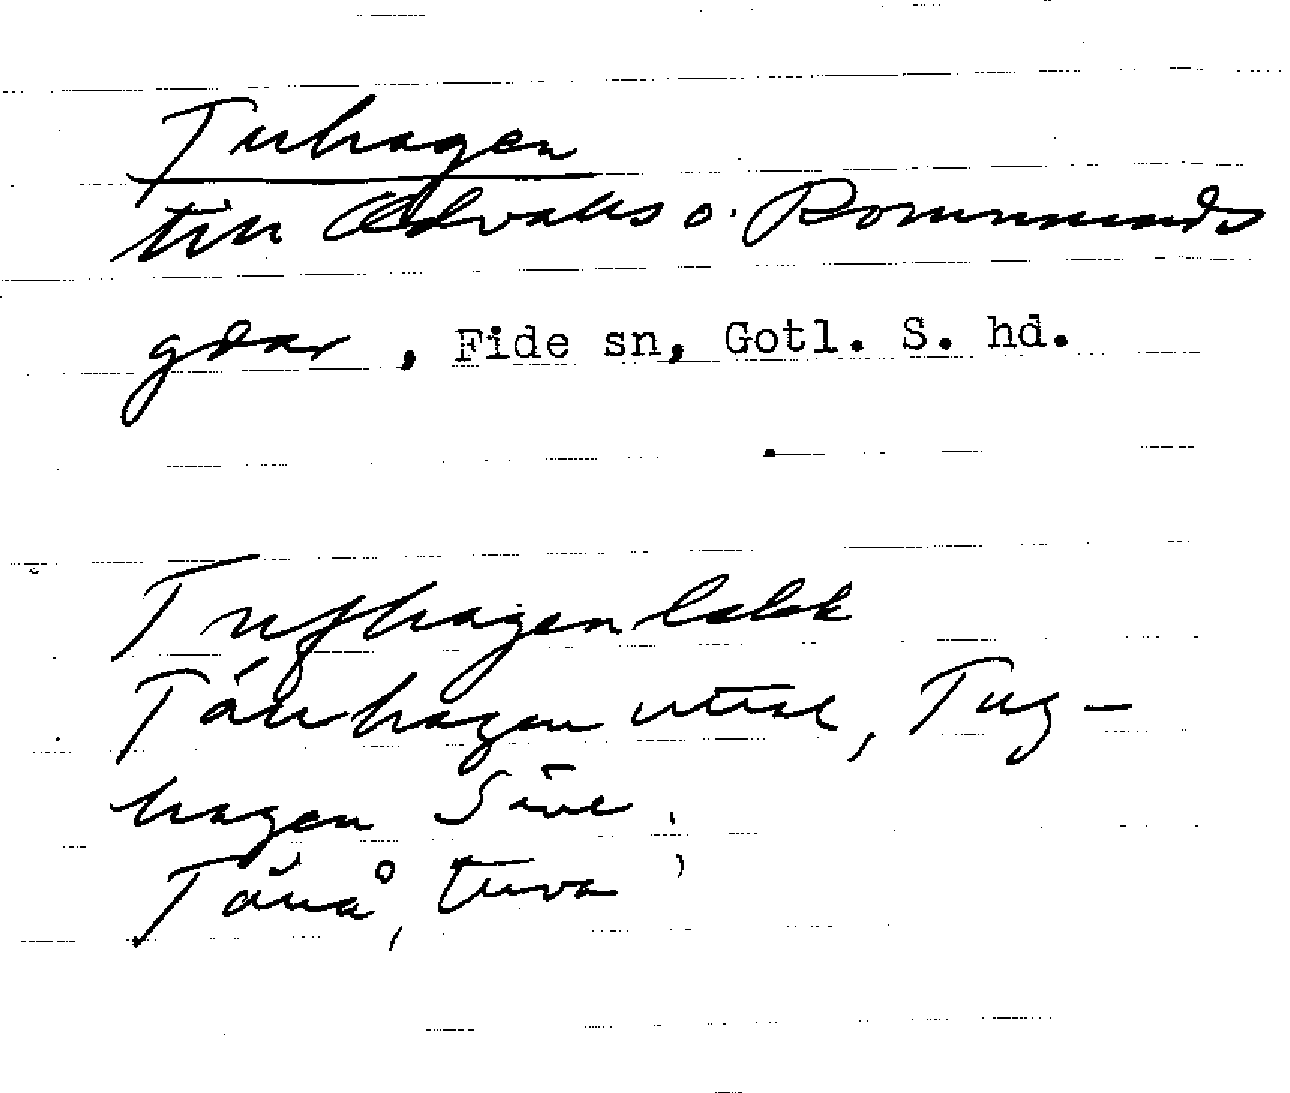 Tuhagen
till Odvalls o. Rommunds
gdar, Fide sn, Gotl. S. hd.
Tufhagen lebk
Táuhagen uttal, Tug-
hagen Säve.
Tåuå, tuva